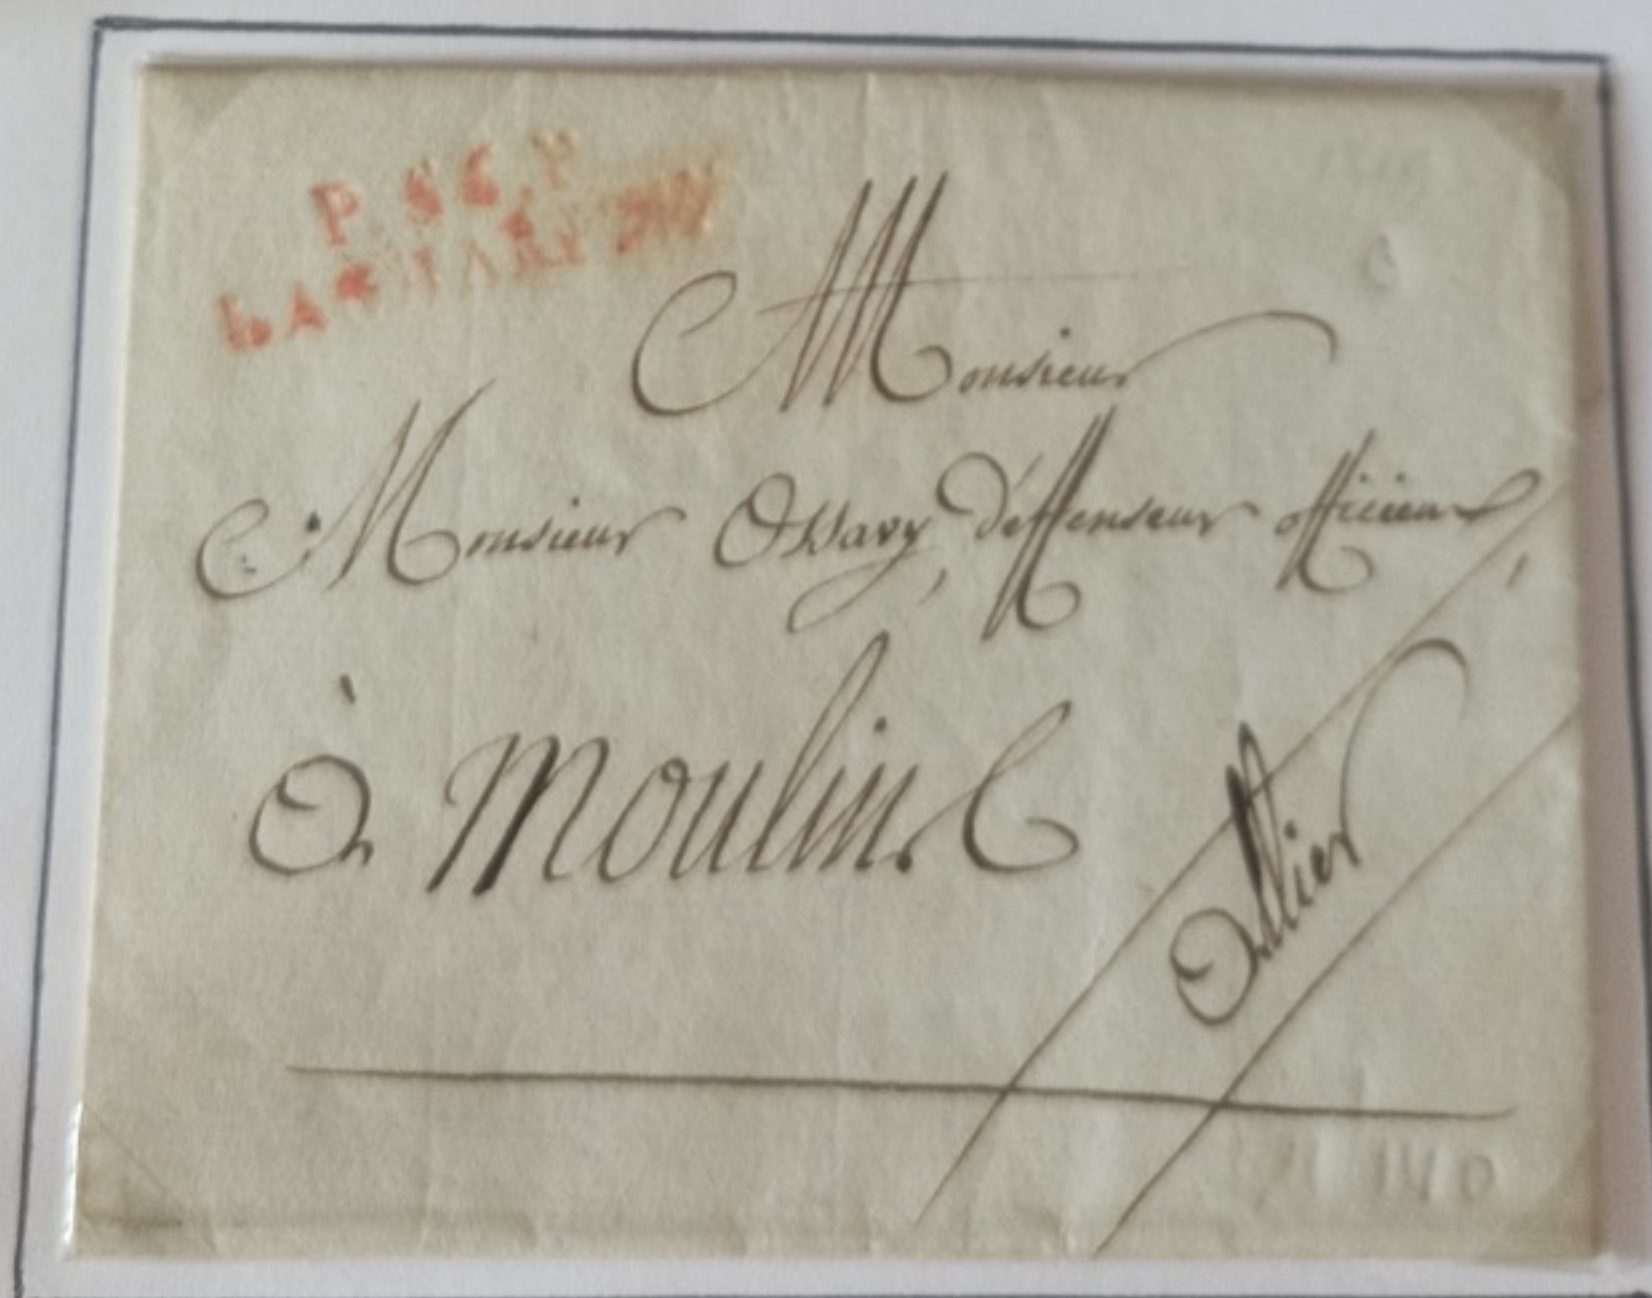 P.56.P
LA CHARITÉ
Monsieur
Monsieur Ossavy, deffenseur officieux,
à Moulins
allier
140